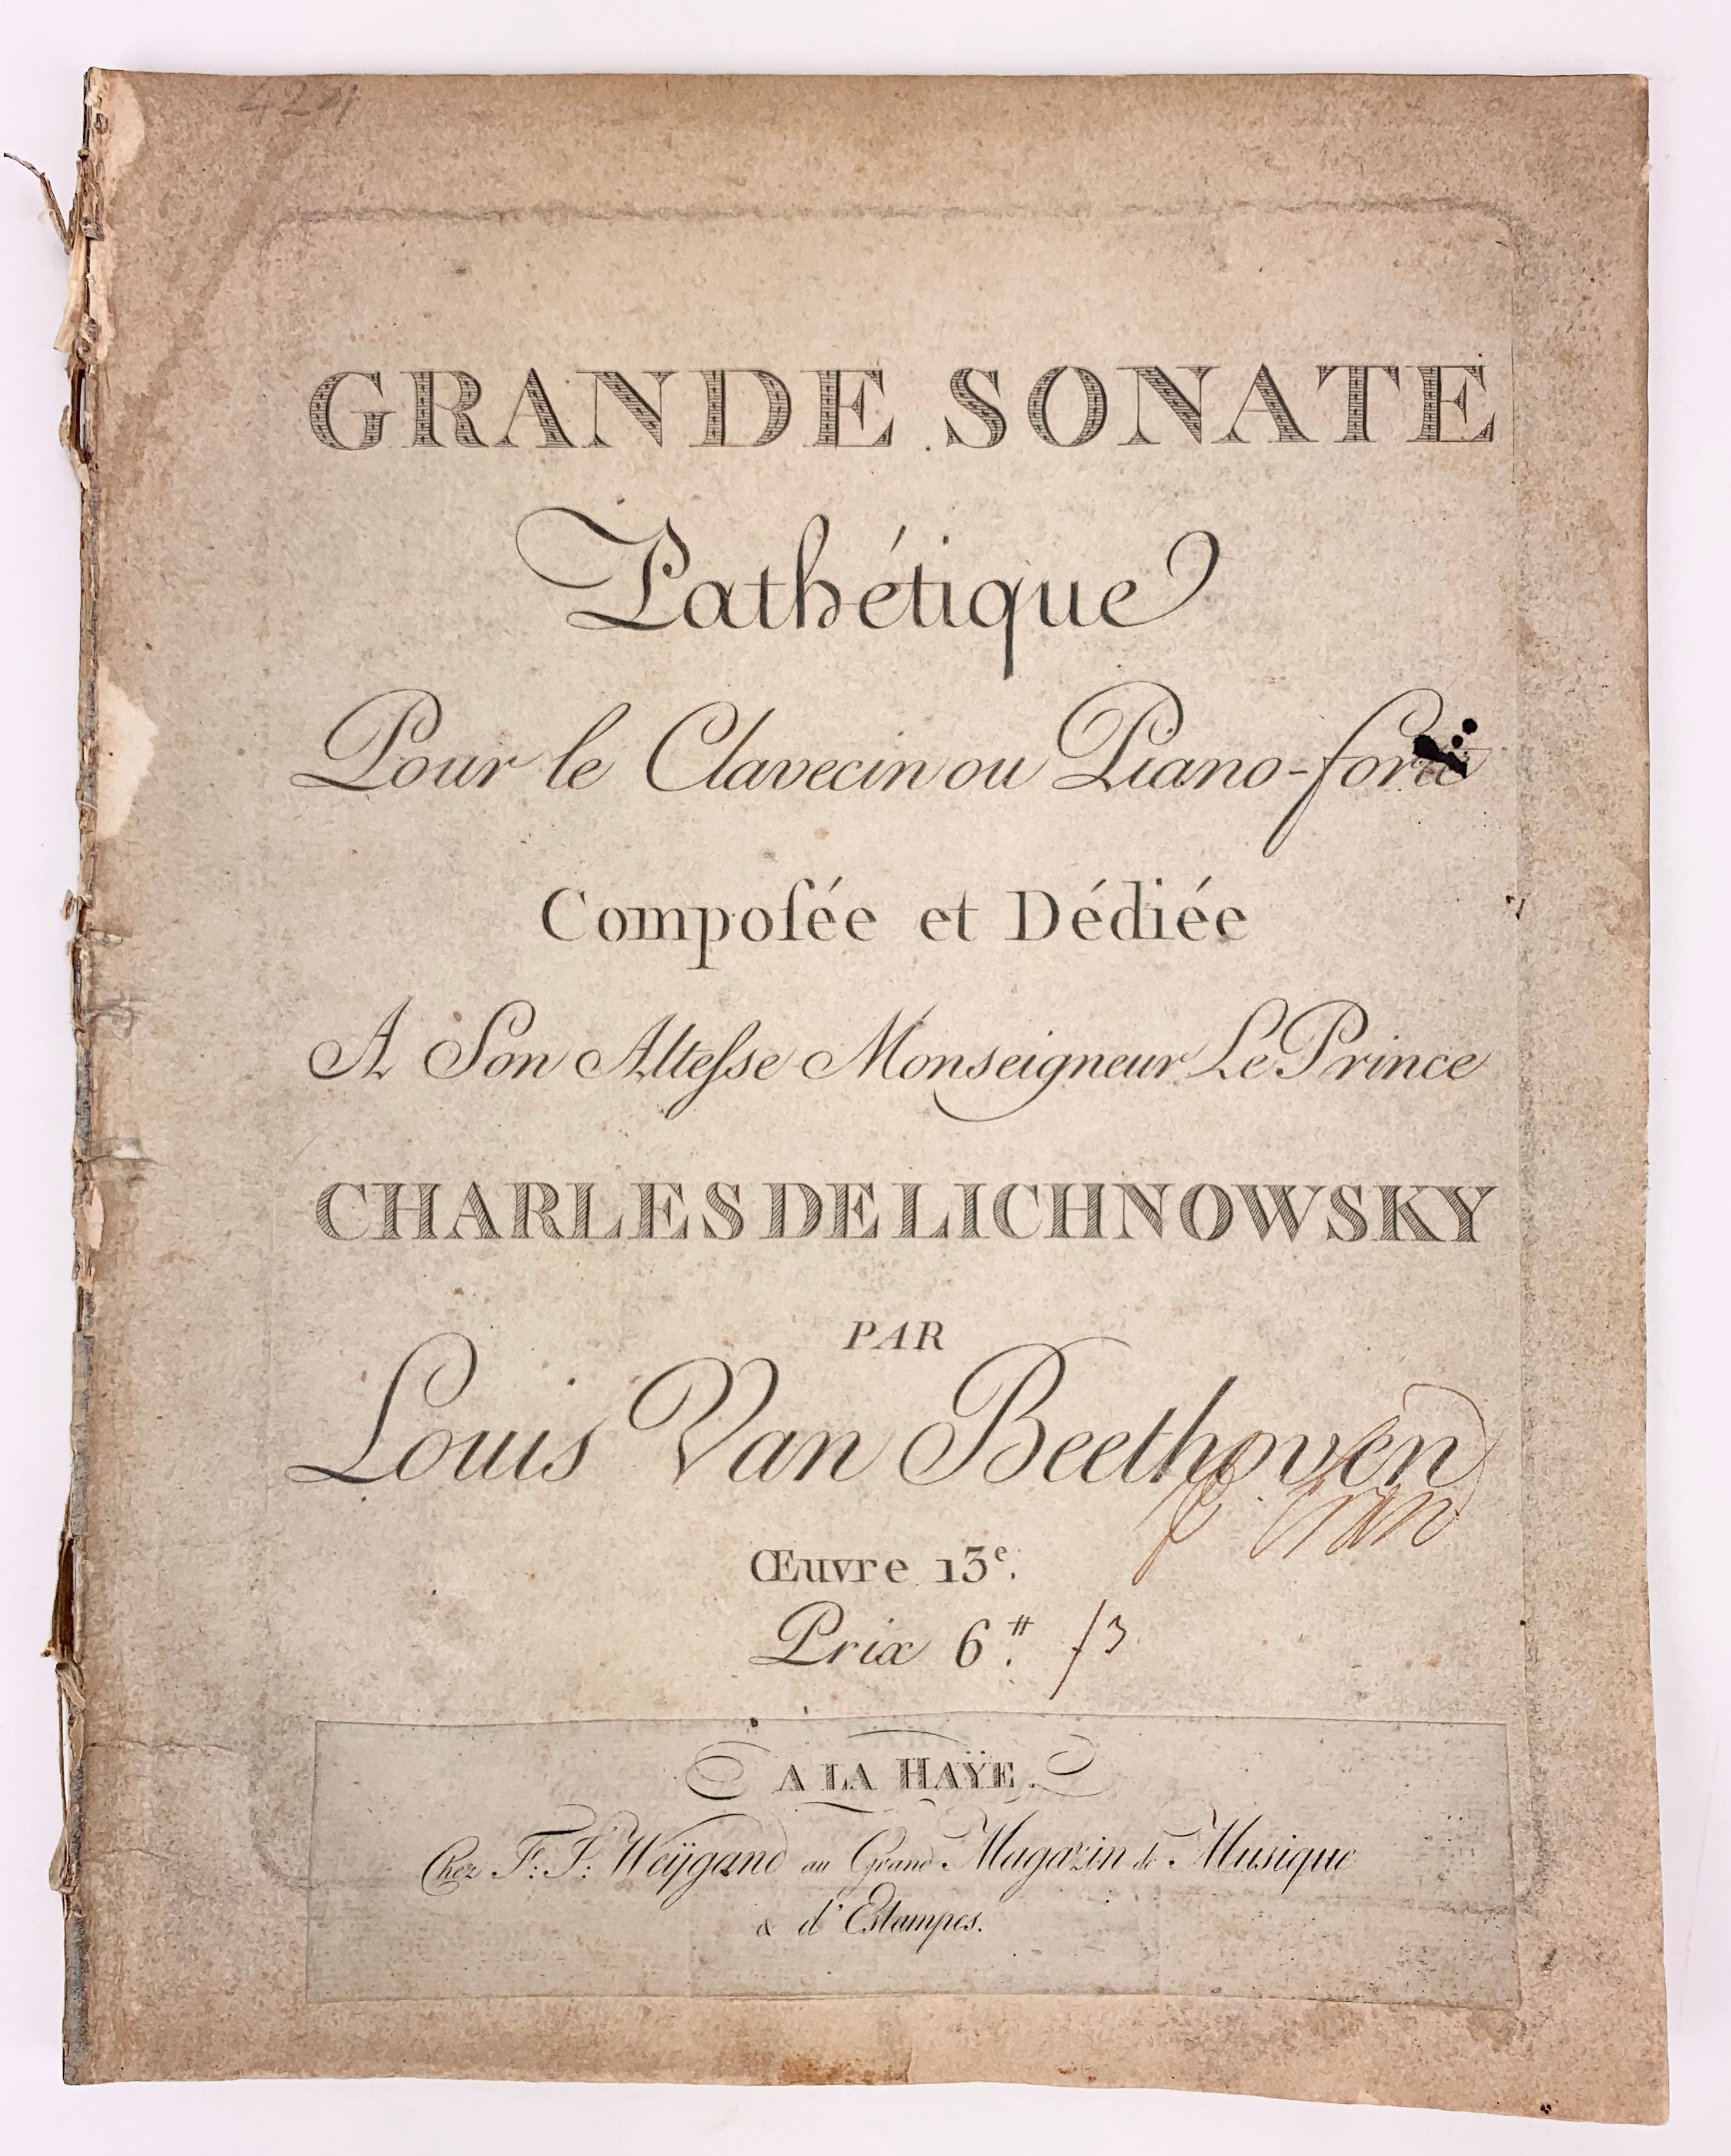 424
GRANDE SONATE
Pathétique
Pour le Clavecin ou Piano-forte
Composée et Dédiée
A Son Altesse Monseigneur Le Prince
CHARLES DE LICHNOWSKY
PAR
Louis Van Beethoven
Œuvre 13e.
Prix 6.# f3
A LA HAŸE.
Chez F: J: Weÿgand au Grand Magazin de Musique
& d'Estampes.